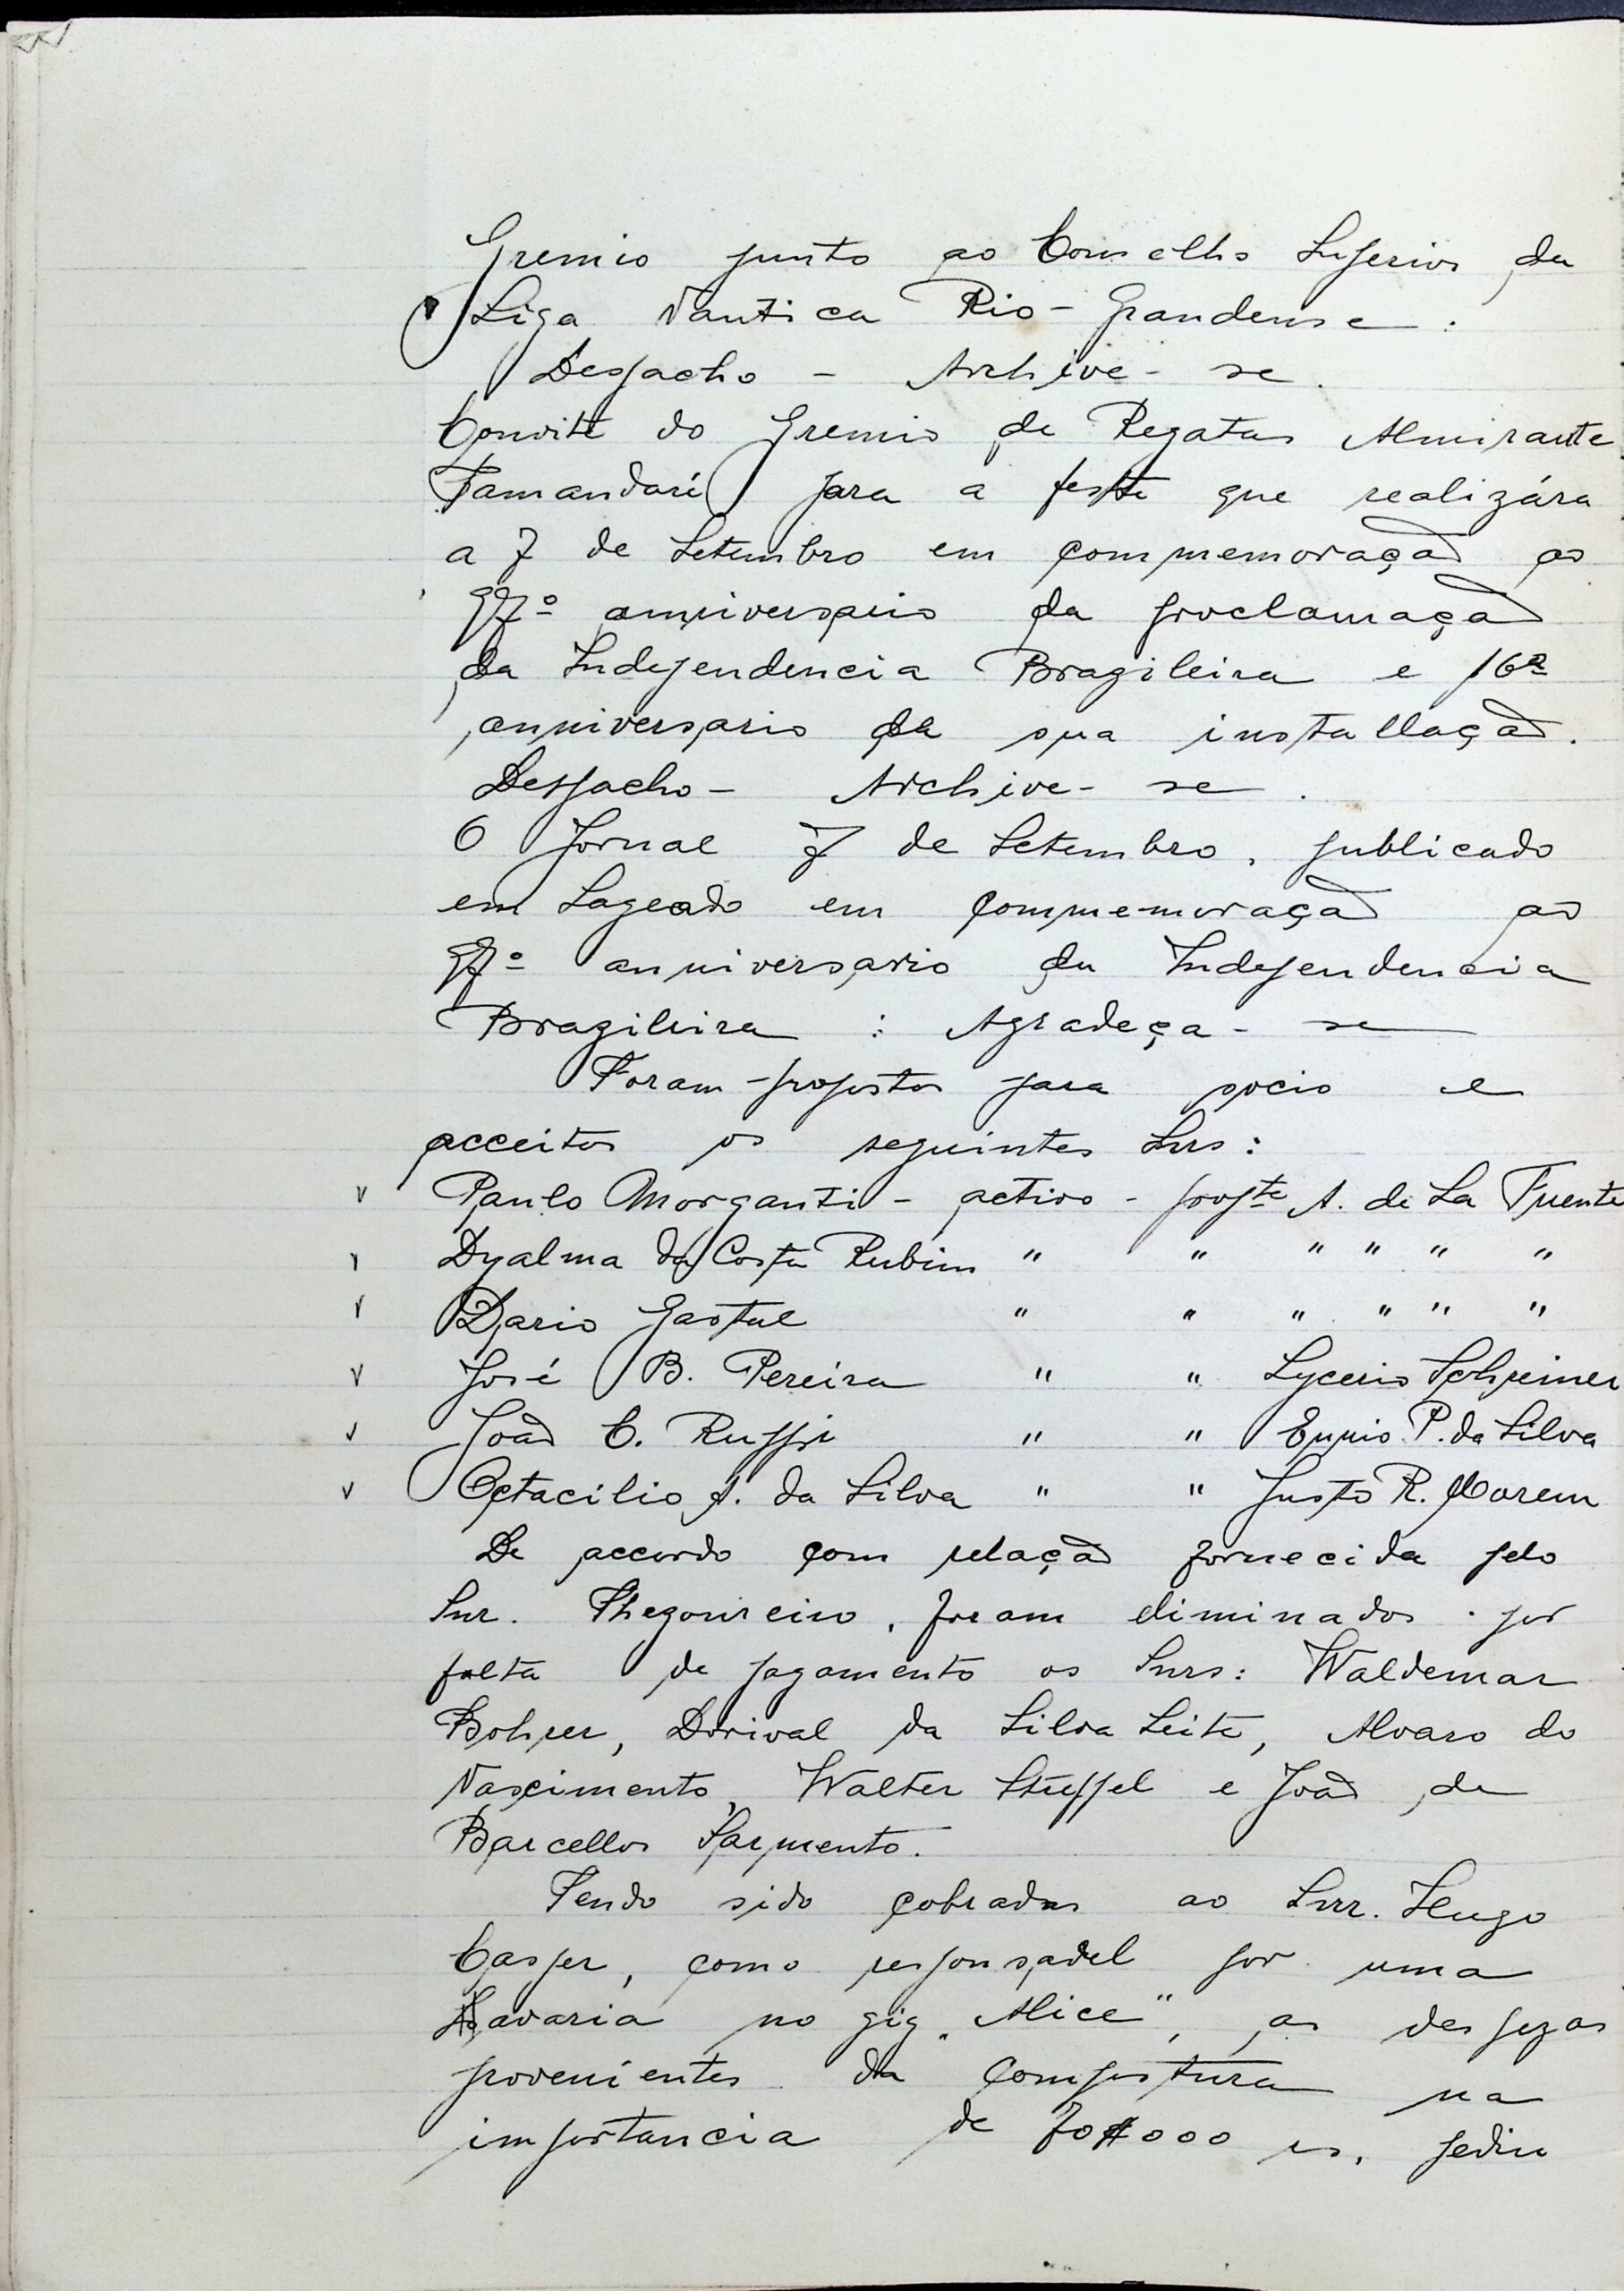 Gremio junto ao Conselho Superior da
Liga Nautica Rio-Grandense.
Despacho - Archive-se.
Convite do Gremio de Regatas Almirante
Tamandaré para a festa que realizára
a 7 de Setembro em commemoração ao
97º anniversario da proclamação
da Independencia Brazileira e 16º
anniversario da sua installação.
Despacho - Archive-se.
O Jornal 7 de Setembro, publicado
em Lageado em commemoração ao
97º anniversario da Independencia
Brazileira : Agradeça-se
Foram propostos para socio e
acceitos os seguintes Snrs:
Paulo Morganti - activo - propte A. de La Fuente
Dyalma da Costa Rubim " " " " " "
Dario Gastal " " " " " "
José B. Pereira " " Lycerio Schreiner
João C. Ruppi " " Ennio P. da Silva
Octacilio A. da Silva " " Justo R. Morem
De accordo com relação fornecida pelo
Snr. Thezoureiro, foram eliminados por
falta de pagamento os Snrs: Waldemar
Bohrer, Dorival da Silva Leite, Alvaro do
Nascimento, Walter Stuppel e João de
Barcellos Sarmento.
Tendo sido cobradas ao Snr. Hugo
Casper, como responsavel por uma
avaria no gig "Alice", as despezas
provenientes da compostura na
importancia de 70$000 rs, pediu